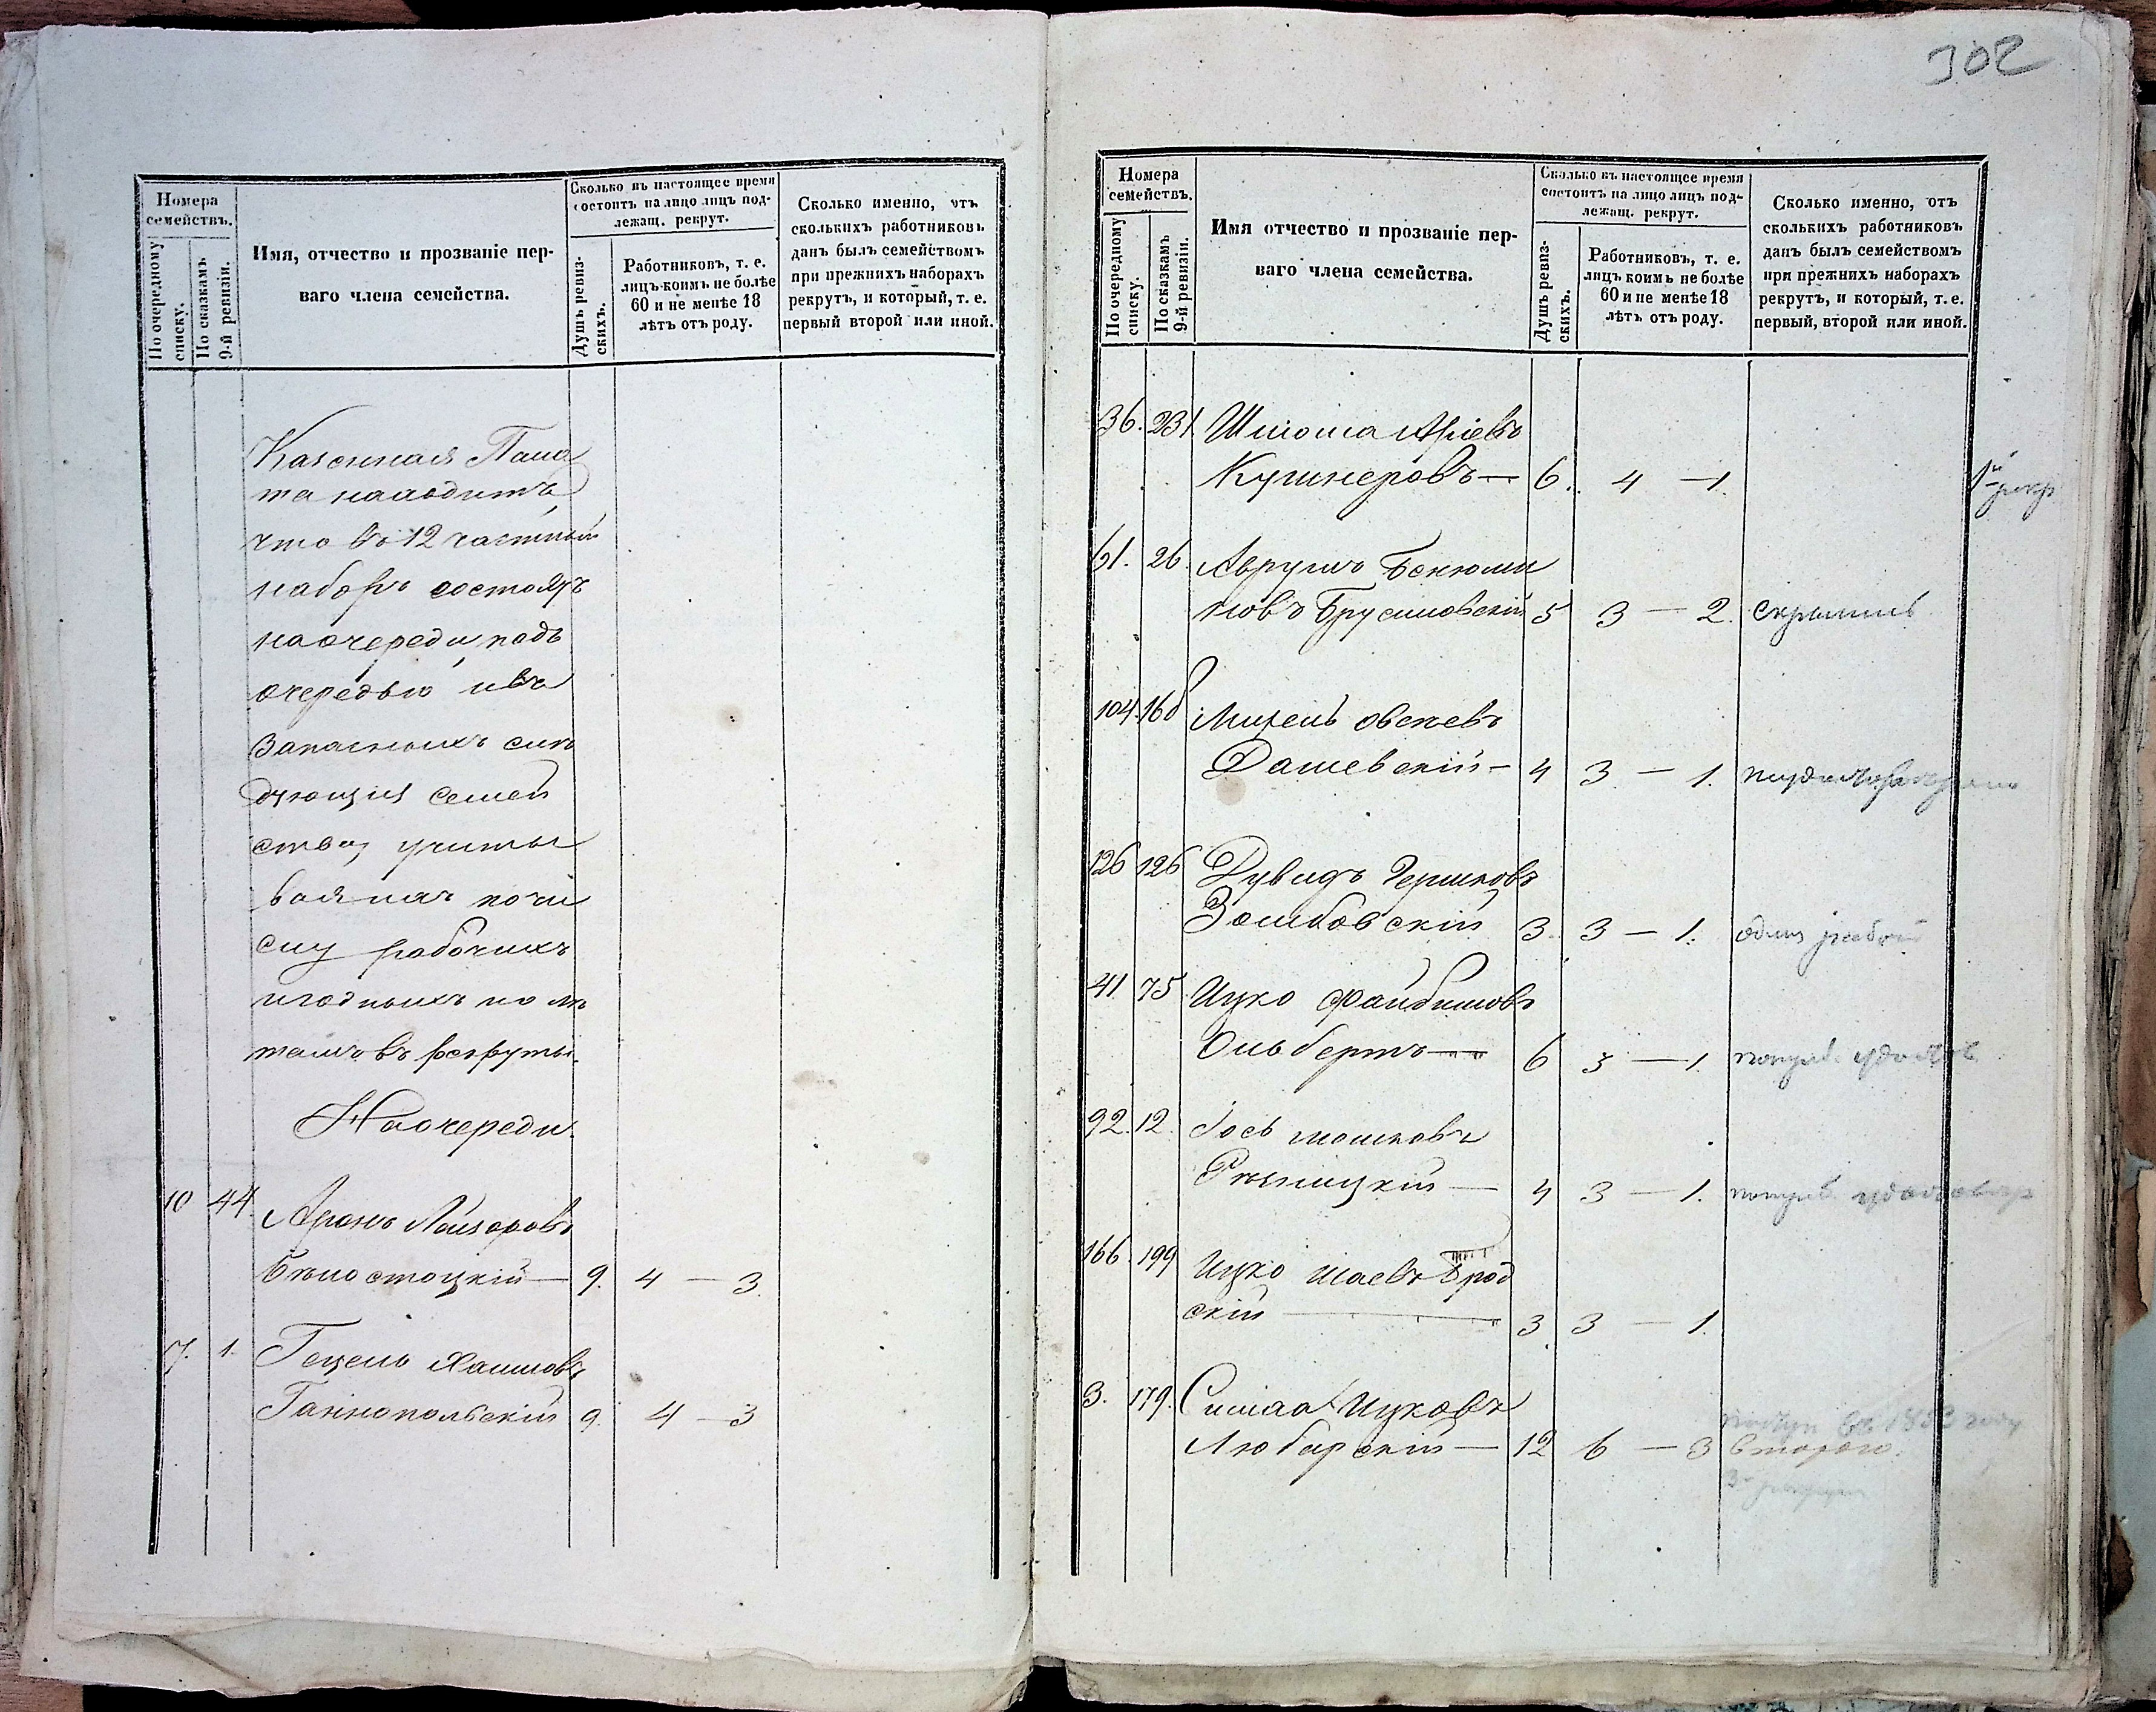 302
Номера
семействъ.
По очередному
списку.
По сказкамъ
9-й ревизіи.
Имя, отчество и прозваніе пер-
ваго члена семейства.
Сколько въ настоящее время
состоитъ на лицо лицъ под-
лежащ. рекрут.
Душъ ревиз-
скихъ.
Работниковъ, т. е.
лицъ коимъ не болѣе
60 и не менѣе 18
лѣтъ отъ роду.
Сколько именно, отъ
сколькихъ работниковъ
данъ былъ семействомъ
при прежнихъ наборахъ
рекрутъ, и который, т. е.
первый второй или иной.
Казенная Пала
та находитъ,
что въ 12 частный
наборъ состоятъ
на очереди, подъ
очередью и въ
запасныхъ слѣ
дующія семей
ства, учиты
вая ихъ по чи
слу рабочихъ
и годныхъ по лѣ
тамъ въ рекруты.
На очереди.
10 44 Аронъ Лейзоровъ
Бѣлостоцкій — 9. 4 — 3.
7. 1. Гецель Хаимовъ
Ганнопольскій 9. 4 — 3
Номера
семействъ.
По очередному
списку.
По сказкамъ
9-й ревизіи.
Имя отчество и прозваніе пер-
ваго члена семейства.
Сколько въ настоящее время
состоитъ на лицо лицъ под-
лежащ. рекрут.
Душъ ревиз-
скихъ.
Работниковъ, т. е.
лицъ коимъ не болѣе
60 и не менѣе 18
лѣтъ отъ роду.
Сколько именно, отъ
сколькихъ работниковъ
данъ былъ семействомъ
при прежнихъ наборахъ
рекрутъ, и который, т. е.
первый, второй или иной.
36. 231. Шліома Аріевъ
Кушнеровъ — 6. 4 — 1.
61. 26. Аврумъ Бенюми
новъ Брусиловскій 5 3 — 2. скрылись
104. 168 Мизель Овсеевъ
Дашевскій — 4 3 — 1.
126 126 Дувидъ Гершковъ
Зомбовскій 3. 3 — 1. одинъ
41 75 Ицко Файбишовъ
Ольбертъ — 6 3 — 1.
92. 12. Іось Мошковъ
Рѣзницкій — 4 3 — 1.
166. 199 Ицко Шаевъ Брод
скій — 3. 3 — 1.
3. 179. Симха Ицковъ
Любарскій — 12 6 — 3 втораго.
въ 1853 году